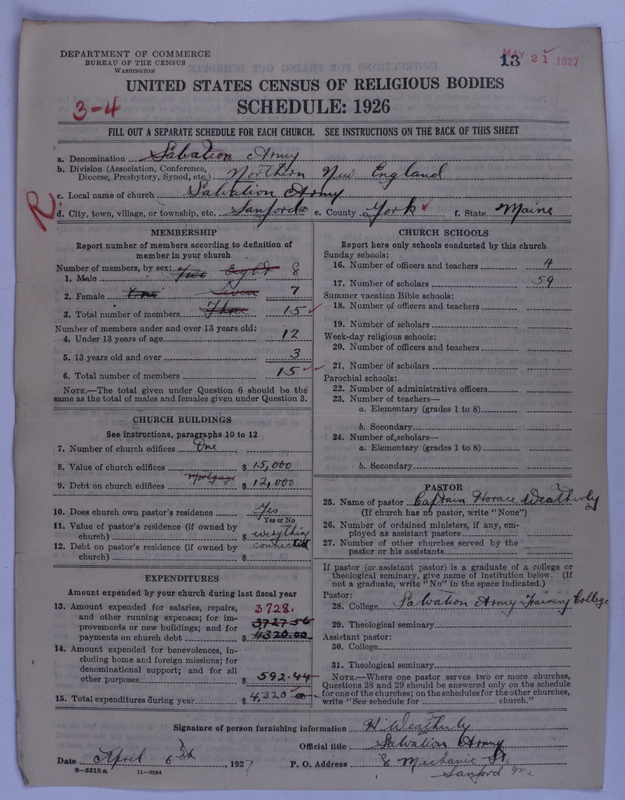 DEPARTMENT OF COMMERCE
BUREAU OF THE CENSUS
WASHINGTON
13 MAY 21 1927
UNITED STATES CENSUS OF RELIGIOUS BODIES
3-4
SCHEDULE: 1926
FILL OUT A SEPARATE SCHEDULE FOR EACH CHURCH. SEE INSTRUCTIONS ON THE BACK OF THIS SHEET
a. Denomination Salvation Army
b. Division (Association, Conference, Diocese, Presbytery, Synod, etc.) Northern New England
c. Local name of church Salvation Army
R.
d. City, town, village, or township, etc. Sanford e. County York f. State Maine
MEMBERSHIP
Report number of members according to definition of
member in your church
Number of members, by sex:
1. Male Two Eight 8
2. Female One Seven 7
3. Total number of members Three 15
Number of members under and over 13 years old:
4. Under 13 years of age 12
5. 13 years old and over 3
6. Total number of members 15
NOTE.—The total given under Question 6 should be the
same as the total of males and females given under Question 3.
CHURCH BUILDINGS
See instructions, paragraphs 10 to 12
7. Number of church edifices One
8. Value of church edifices $ 15,000
9. Debt on church edifices Mortgage $ 12,000
10. Does church own pastor's residence Yes
Yes or No
11. Value of pastor's residence (if owned by
church) $ everything
12. Debt on pastor's residence (if owned by connected
church) $
EXPENDITURES
Amount expended by your church during last fiscal year
13. Amount expended for salaries, repairs, 3728.
and other running expenses; for im- 3727.56
provements or new buildings; and for
payments on church debt $ 4320.00
14. Amount expended for benevolences, in-
cluding home and foreign missions; for
denominational support; and for all
other purposes $ 592.44
15. Total expenditures during year $ 4,320
CHURCH SCHOOLS
Report here only schools conducted by this church
Sunday schools:
16. Number of officers and teachers 4
17. Number of scholars 59
Summer vacation Bible schools:
18. Number of officers and teachers
19. Number of scholars
Week-day religious schools:
20. Number of officers and teachers
21. Number of scholars
Parochial schools:
22. Number of administrative officers
23. Number of teachers—
a. Elementary (grades 1 to 8)
b. Secondary
24. Number of scholars—
a. Elementary (grades 1 to 8)
b. Secondary
PASTOR
25. Name of pastor Captain Horace Weatherly
(If church has no pastor, write "None")
26. Number of ordained ministers, if any, em-
ployed as assistant pastors
27. Number of other churches served by the
pastor or his assistants
If pastor (or assistant pastor) is a graduate of a college or
theological seminary, give name of institution below. (If
not a graduate, write "No" in the space indicated.)
Pastor:
28. College Salvation Army Training College
29. Theological seminary
Assistant pastor:
30. College
31. Theological seminary
NOTE.—Where one pastor serves two or more churches,
Questions 28 and 29 should be answered only on the schedule
for one of the churches; on the schedules for the other churches,
write "See schedule for church."
Signature of person furnishing information H Weatherly
Official title Salvation Army
Date April 6th, 1927 P. O. Address 8 Mechanic St.
8-5518a 11-9054 Sanford Me